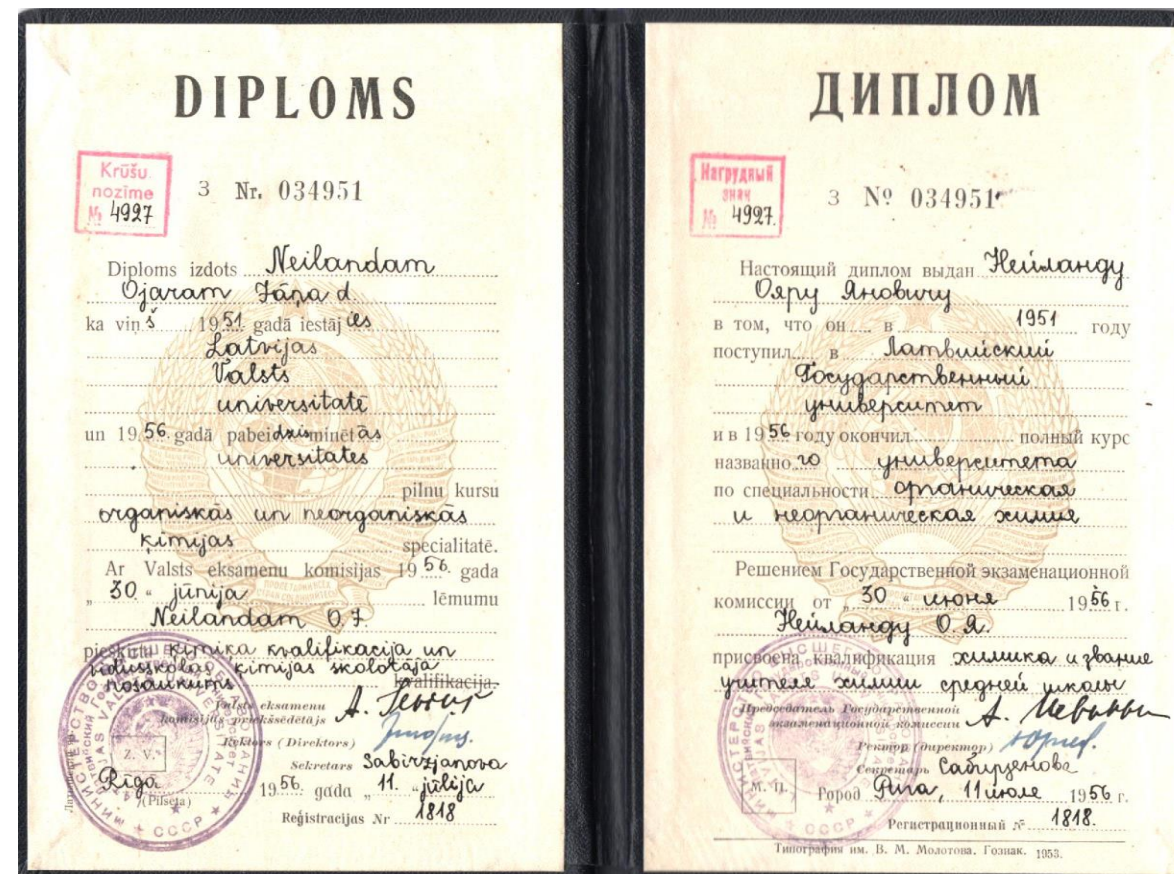 DIPLOMS
Krūšu
nozīme
№ 4927
З Nr. 034951
Diploms izdots Neilandam
Ojaram Jāņa d.
ka viņš 1951 gadā iestājies
Latvijas
Valsts
universitatē
un 1956. gadā pabeidzis minētās
universitates
pilnu kursu
organiskās un neorganiskās
ķimijas specialitatē.
Ar Valsts eksamenu komisijas 1956. gada
„30.“ jūnija lēmumu
Neilandam O. J.
pieškirtu ķimiķa kvalifikacija un
vidusskolas ķimijas skolotāja
nosaukums kvalifikacija.
Valsts eksamenu
komisijas priekšsēdētājs
Rektors (Direktors)
Sekretars Sabirzjanova
Z. V.
Rīgā 1956. gada „11.“ jūlijā
(Pilsēta)
Reģistracijas Nr 1818
ДИПЛОМ
Нагрудный
знак
№ 4927.
З № 034951
Настоящий диплом выдан Нейланду
Ояру Яновичу
в том, что он в 1951 году
поступил в Латвийский
Государственный
университет
и в 1956 году окончил полный курс
названного университета
по специальности органическая
и неорганическая химия
Решением Государственной экзаменационной
комиссии от „30“ июня 1956 г.
Нейланду О. Я.
присвоена квалификация химика и звание
учителя химии средней школы
Председатель Государственной
экзаменационной комиссии
Ректор (директор)
Секретарь
М. П.
Город Рига, 11 июля 1956 г.
Регистрационный № 1818.
Типография им. В. М. Молотова. Гознак. 1953.